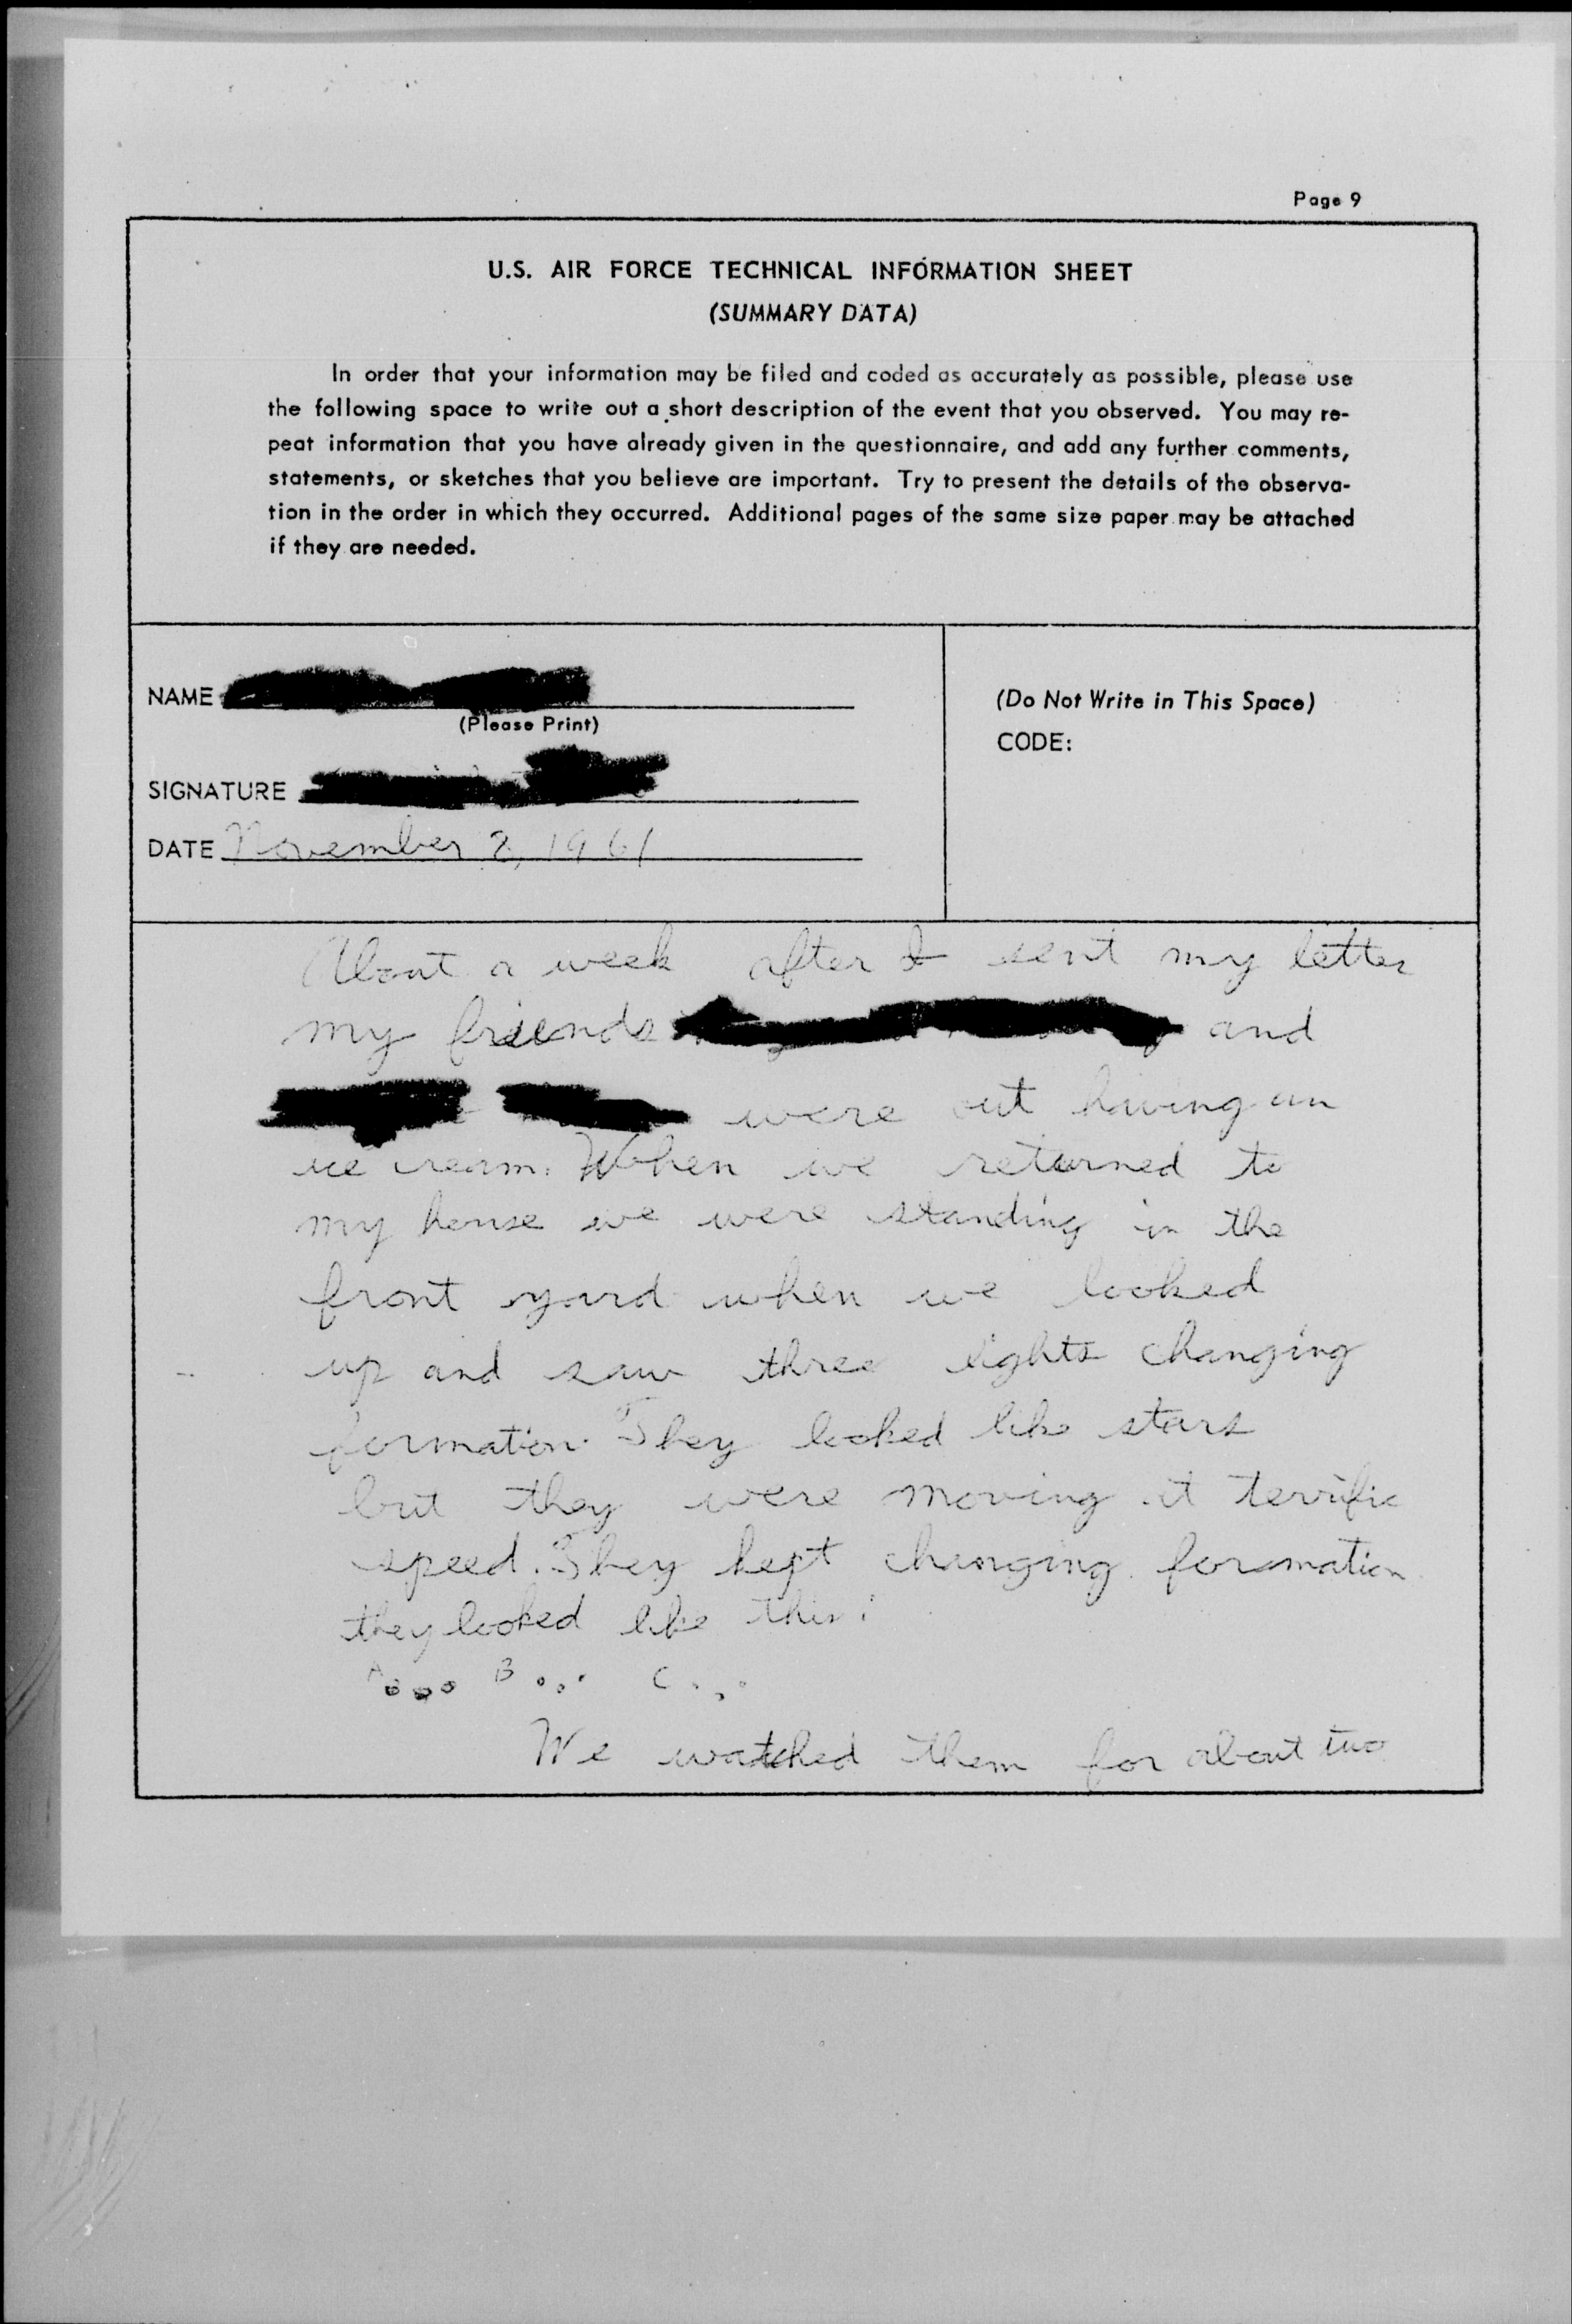 Page 9
U.S. AIR FORCE TECHNICAL INFORMATION SHEET
(SUMMARY DATA)
In order that your information may be filed and coded as accurately as possible, please use
the following space to write out a short description of the event that you observed. You may re-
peat information that you have already given in the questionnaire, and add any further comments,
statements, or sketches that you believe are important. Try to present the details of the observa-
tion in the order in which they occurred. Additional pages of the same size paper may be attached
if they are needed.
NAME
(Please Print)
SIGNATURE
DATE November 2, 1961
(Do Not Write in This Space)
CODE:
About a week after I sent my letter
my friends and
were out having an
ice cream. When we returned to
my house we were standing in the
front yard when we looked
up and saw three lights changing
formation. They looked like stars
but they were moving at terrific
speed. They kept changing formation
they looked like this:
A B C
We watched them for about two